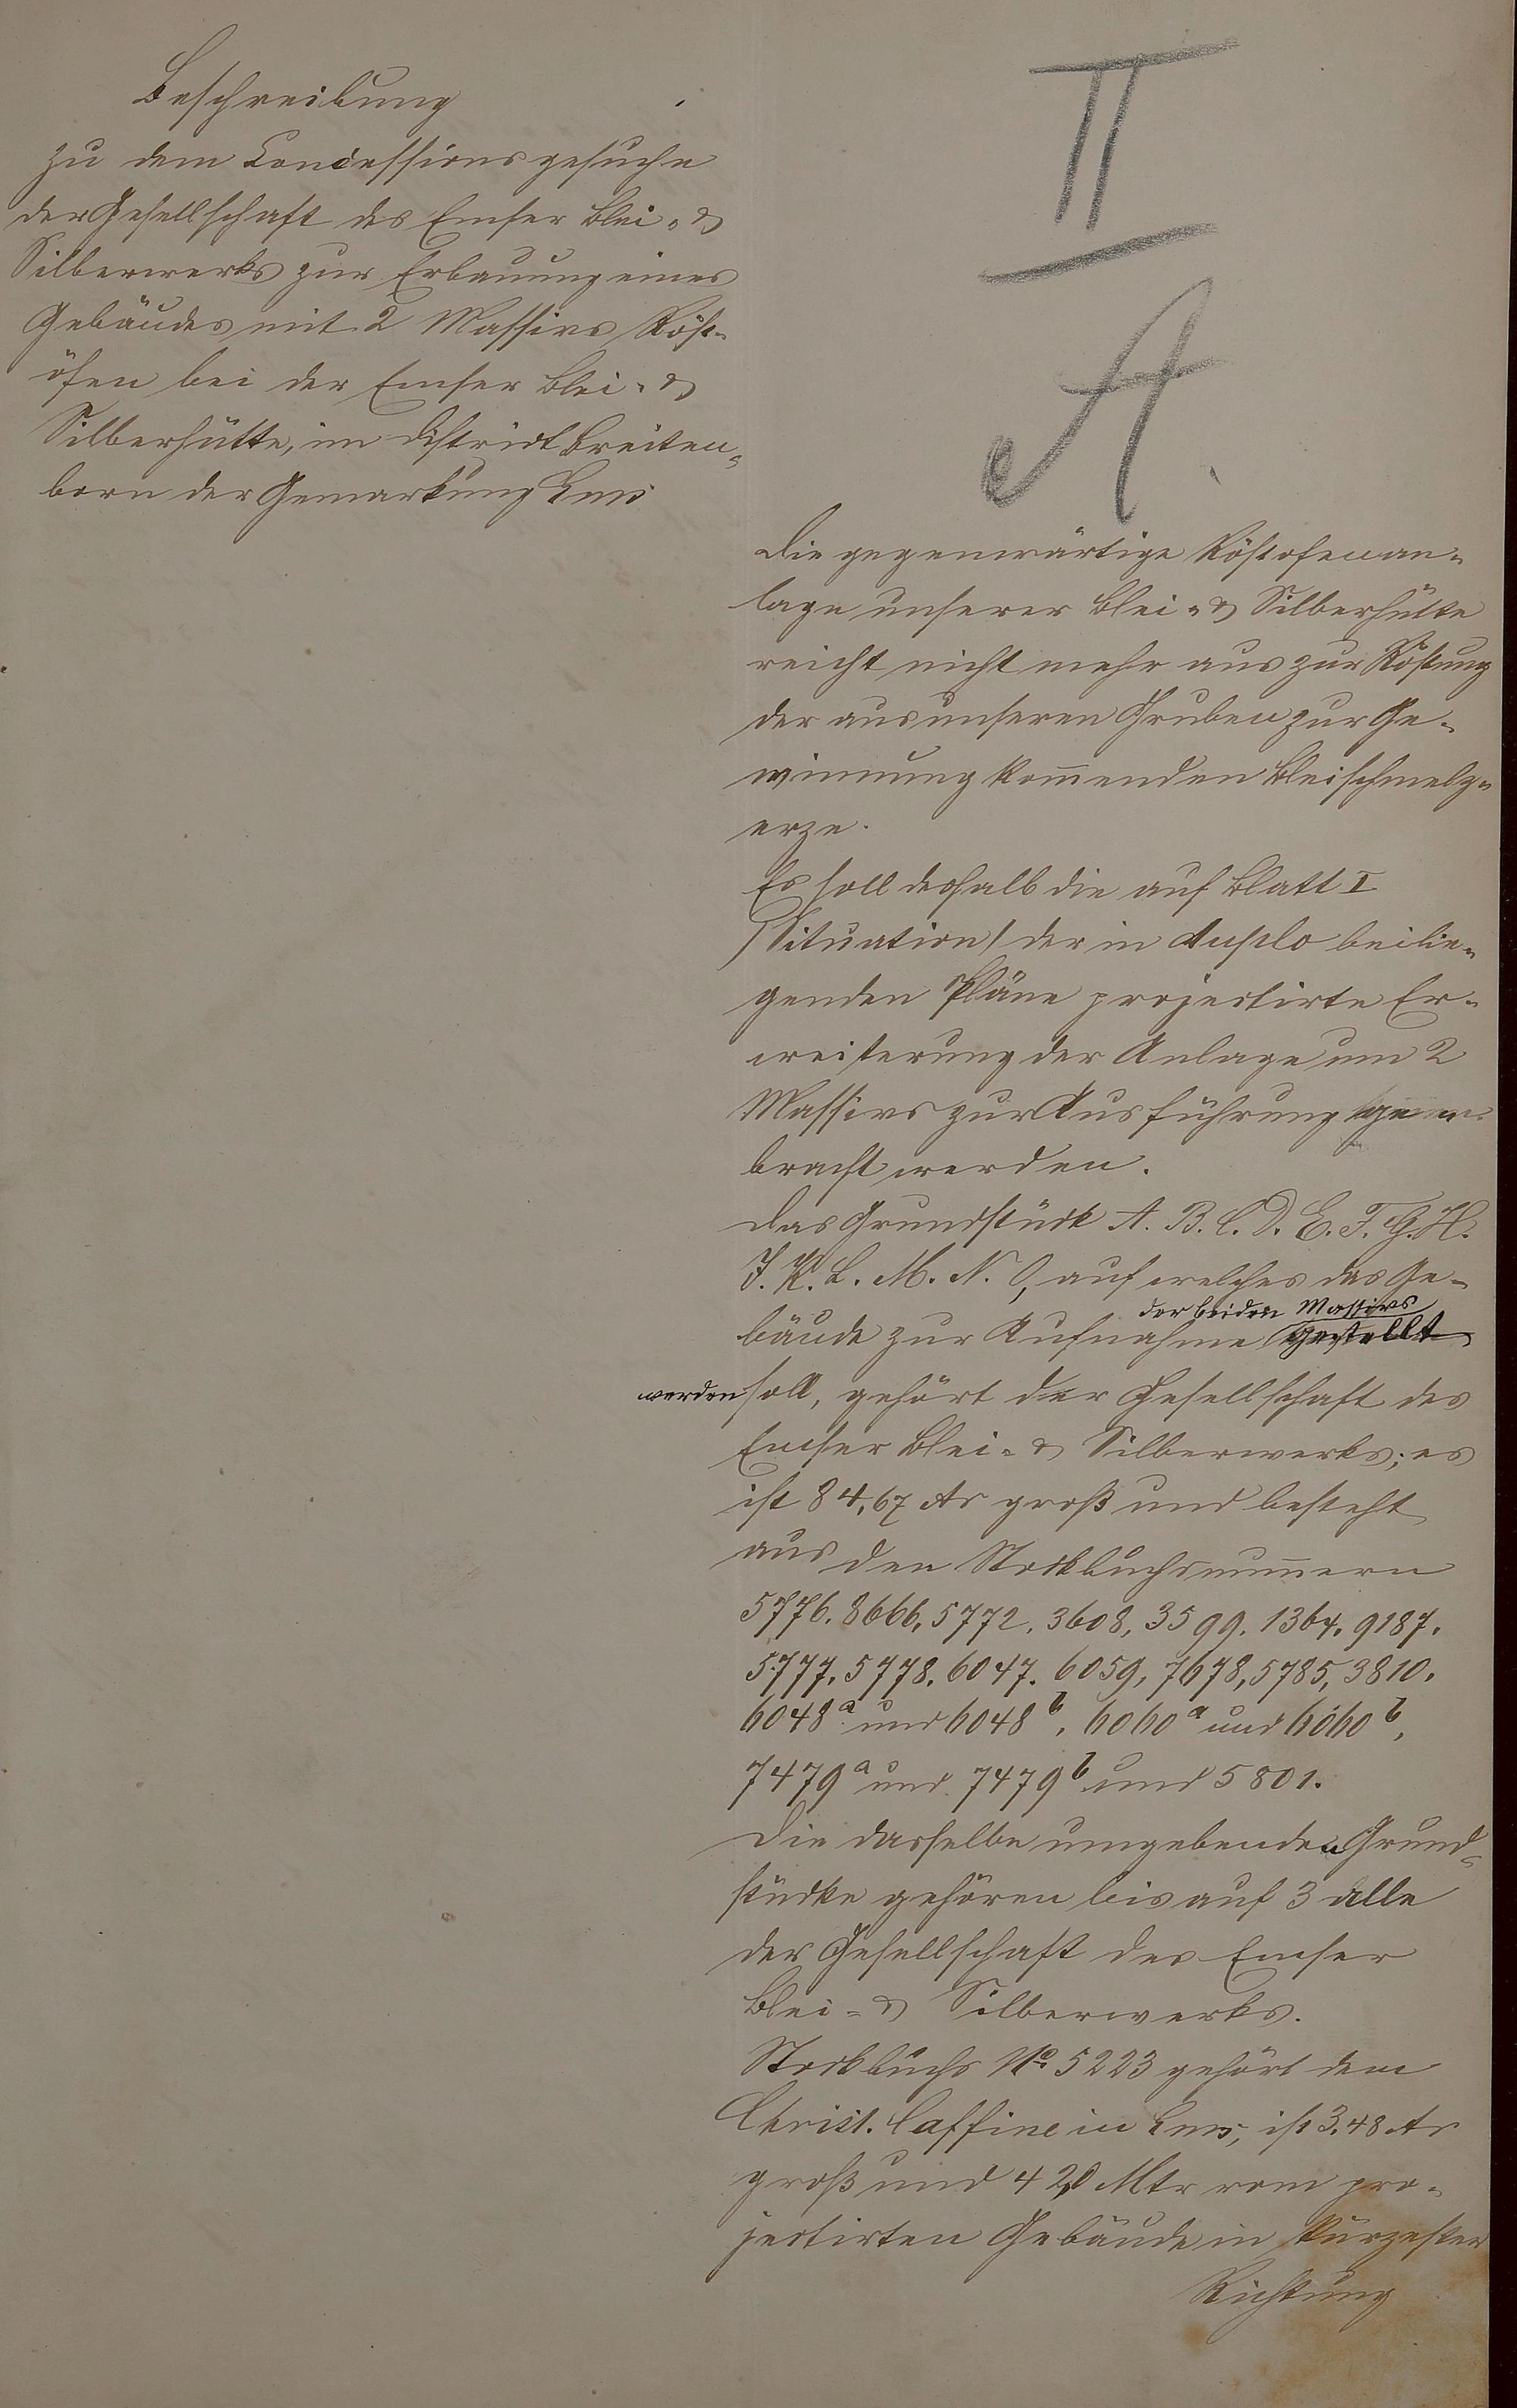 Beschreibung
zu dem Concessionsgesuche
der Gesellschaft des Emser Blei- &
Silberwerks zur Erbauung eines
Gebäudes mit 2 Massivs Röst-
öfen bei der Emser Blei- &
Silberhütte, im District Breiten-
born der Gemarkung Ems
II
A.
Die gegenwärtige Röstofenan-
lage unserer Blei- & Silberhütte
reicht nicht mehr aus zur Röstung
der aus unseren Gruben zur Ge-
winnung kom̅enden Bleischmelz-
erze.
Es soll deshalb die auf Blatt I
/Situation/ der in duplo beilie-
genden Pläne projectirte Er-
weiterung der Anlage um 2
Massivs zur Ausführung ge-
bracht werden.
Das Grundstück A. B. C. D. E. F. G. H.
J. K. L. M. N. O, auf welches das Ge-
der beiden Massivs
bäude zur Aufnahme gestellt
werden soll, gehört der Gesellschaft des
Emser Blei- & Silberwerks; es
ist 84,67 Ar groß und besteht
aus den Stockbuchsnum̅ern
5776. 8666. 5772. 3608, 3599. 1364. 9187.
5777. 5778. 6047. 6059, 7678, 5785, 3810.
6048ᵃ und 6048ᵇ, 6060ᵃ und 6060ᵇ,
7479ᵃ und 7479ᵇ und 5801.
Die dasselbe umgebenden Grund-
stücke gehören bis auf 3 alle
der Gesellschaft des Emser
Blei- & Silberwerks.
Stockbuchs No 5223 gehört dem
Christ. Caffine in Ems, ist 3,48 Ar
groß und 42,0 Mtr vom pro-
jectirten Gebäude in kürzester
Richtung